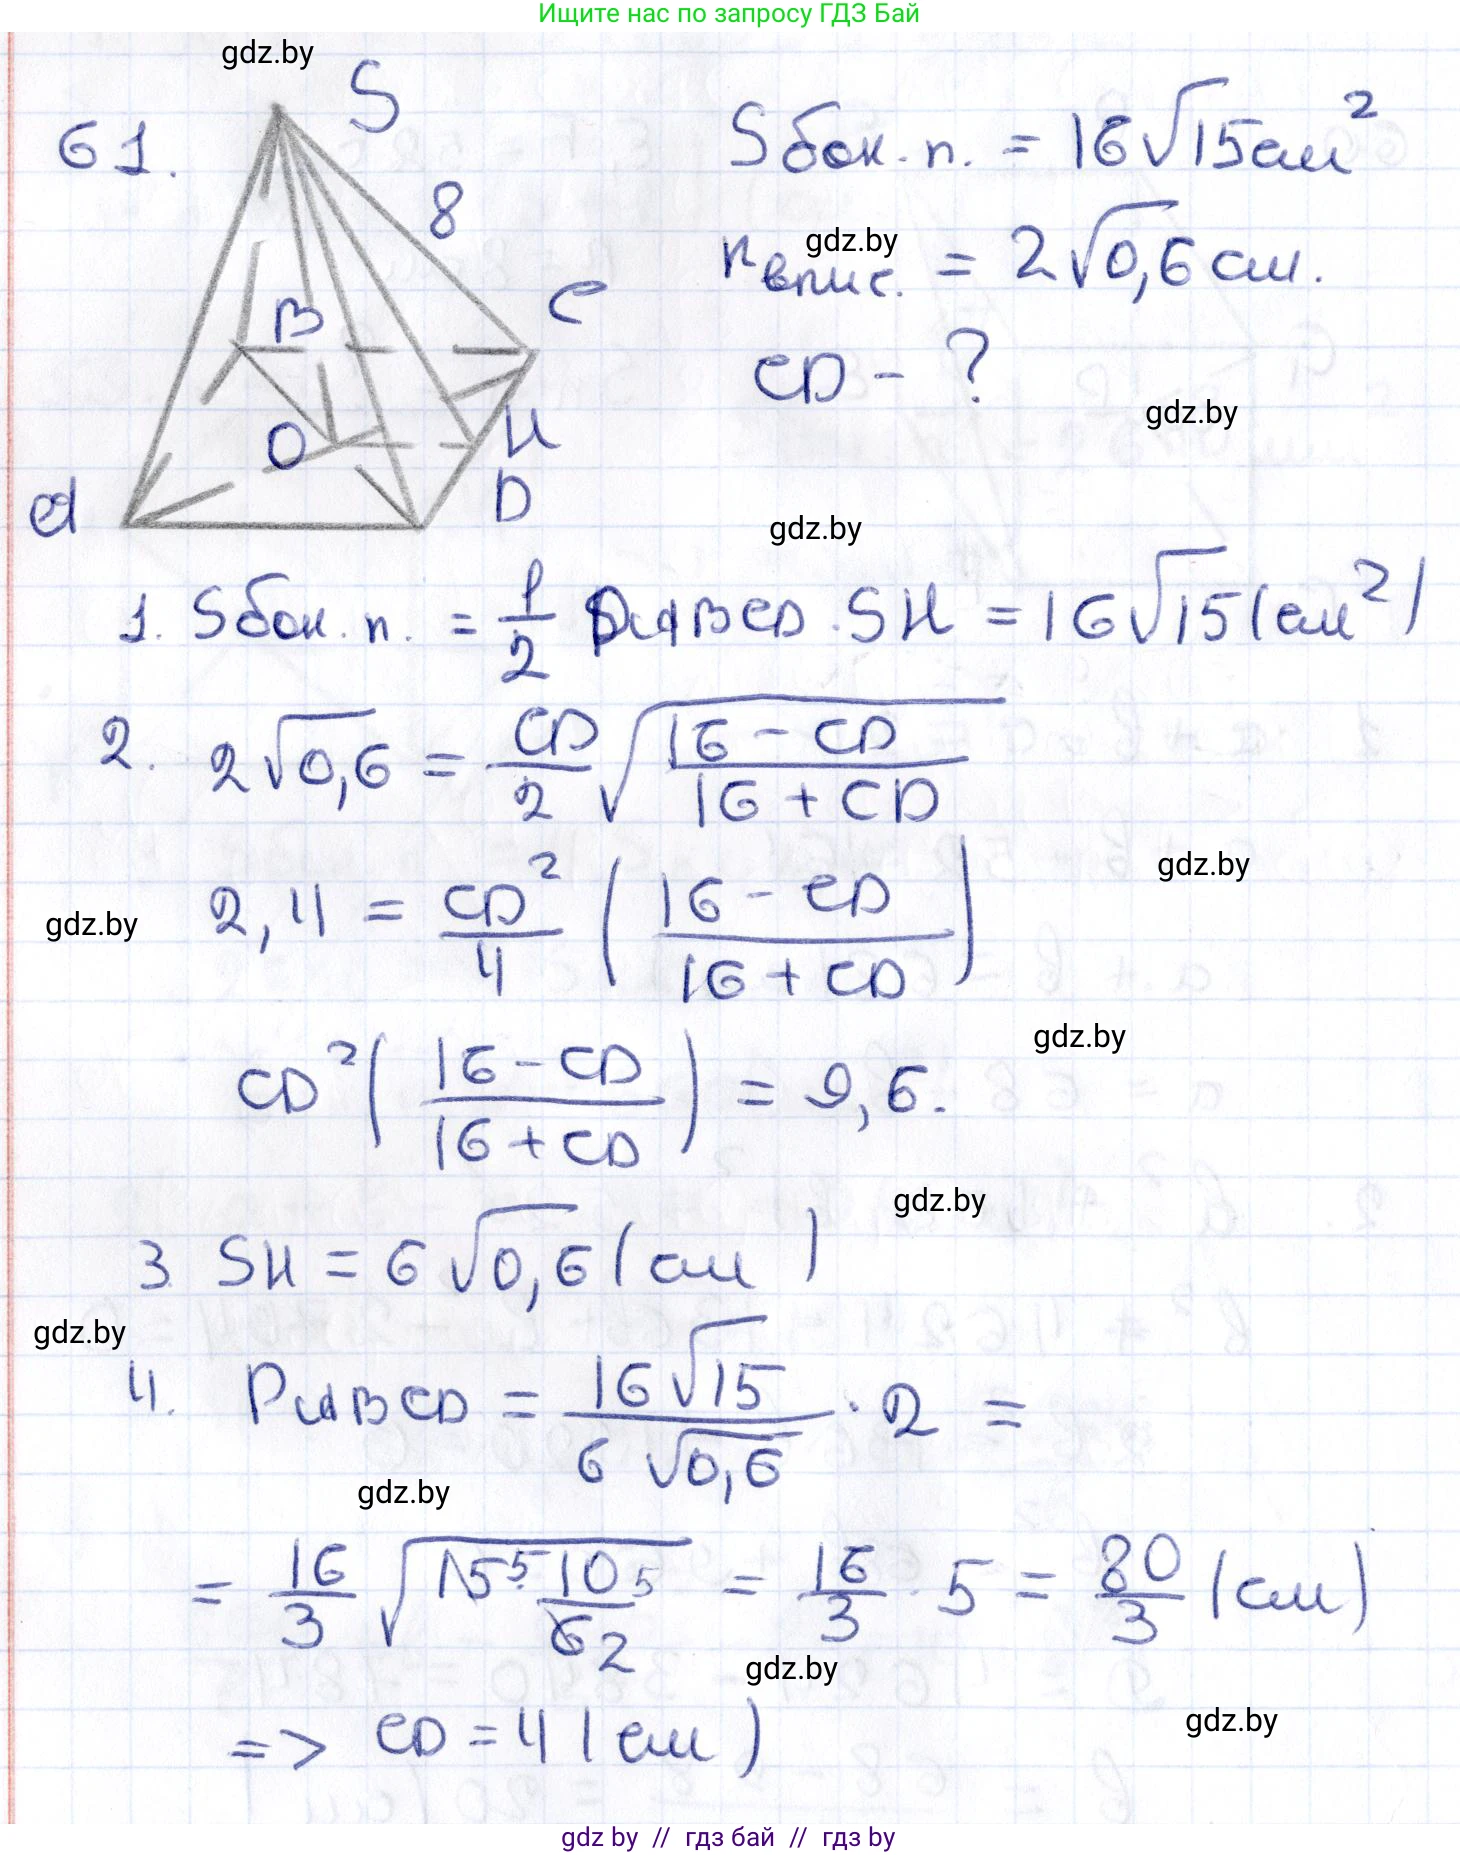 Ищите нас по запросу ГДЗ Бай
gdz.by
61.
S
8
B
C
O
H
A
D
Sбок.п. = 16√15 см²
gdz.by
rвпис. = 2√0,6 см.
CD - ?
gdz.by
gdz.by
1. Sбок.п. = 1/2 PABCD · SH = 16√15 (см²)
2. 2√0,6 = CD/2 √((16 - CD)/(16 + CD))
gdz.by
gdz.by
2,4 = CD²/4 ((16 - CD)/(16 + CD))
gdz.by
CD² ((16 - CD)/(16 + CD)) = 9,6.
gdz.by
3. SH = 6√0,6 (см)
gdz.by
4. PABCD = 16√15/(6√0,6) · 2 =
gdz.by
= 16/3 √(15⁵ · 10 5/6 2) = 16/3 · 5 = 80/3 (см)
gdz.by
gdz.by
=> CD = 4 (см)
gdz.by // гдз бай // гдз by